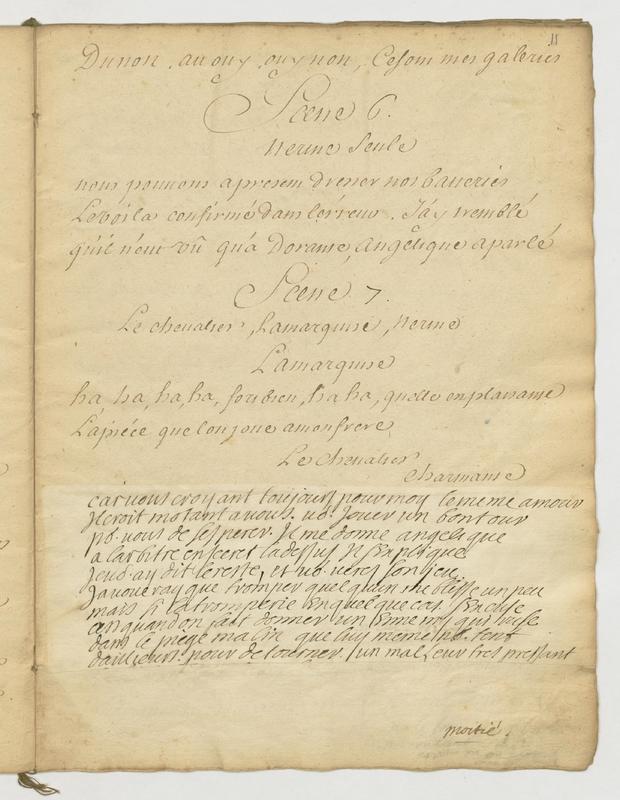 11
Du non, au ouy, ouy non, Cesom mes galeries
Scene 6.
Nerine Seule
nous pouvons apresem dresser nos batteries
Le voila confirmé dans lerreur. J'ay tremblé
qu'il n'eut vû qu'a Dorante, Angelique a parlé
Scene 7.
Le chevalier, La marquise, Nerine
La marquise
ha ha, ha, ha, fort bien, ha ha, quelle est plaisante
La piéce que lon joue a mon frere
Le Chevalier
Charmante
car vous croyant toujours pour moy le meme amour
Il croit motant a vous. vo. Jouer un bon tour
po. vous desesperer. Il me donne angelique
a larbitre en secret la dessus Il s'explique
Jeud. ay dit le reste, et vo. verés son jeu
Javoueray que tromper quelquun me blesse un peu
mais si la tromperie en quelque cas s'excuse
c'est quand on fait donner un Ennemy qui ruse
dans le piege malin que luy meme no. tend
dailleurs. pour detourner. un malheur tres pressant
moitié.